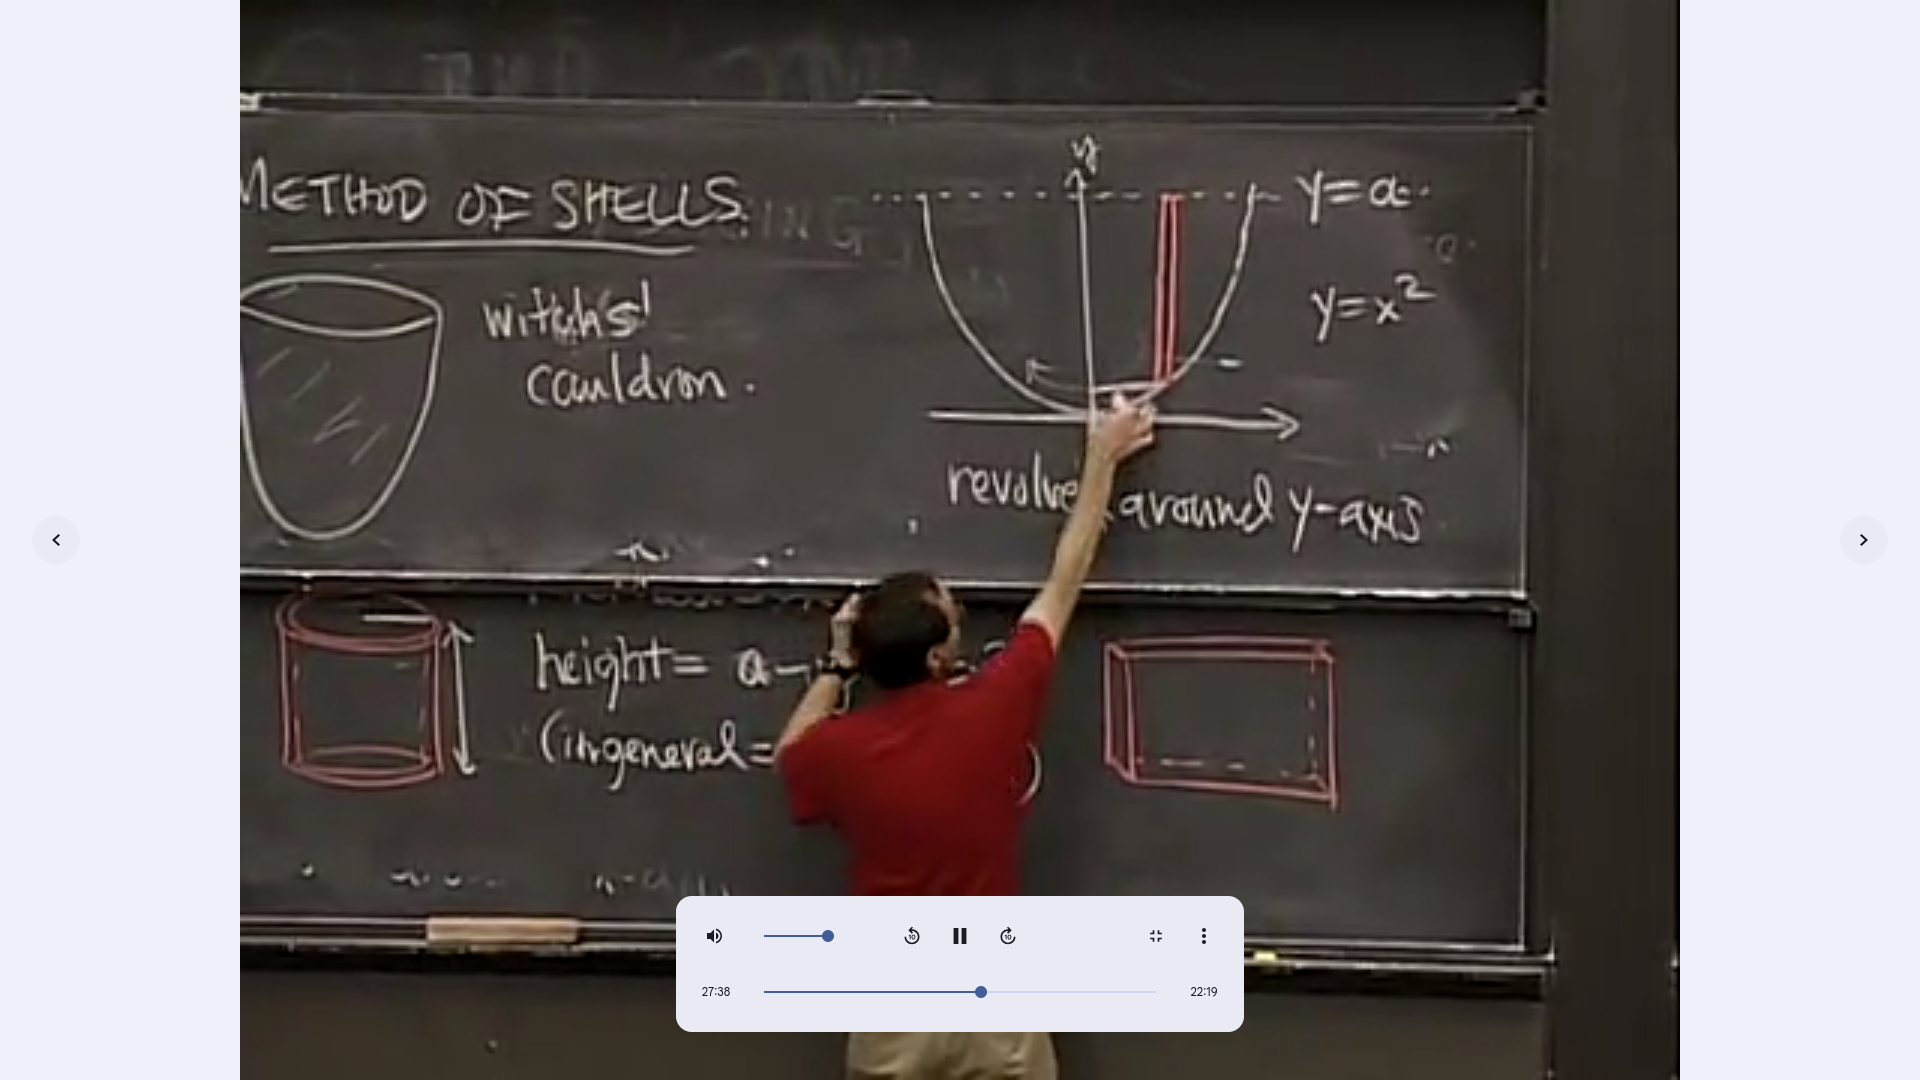 METHOD OF SHELLS.
y
y=a
y=x²
witch's
cauldron.
revolve around y-axis
height= a-
(in general=
)
27:38
22:19